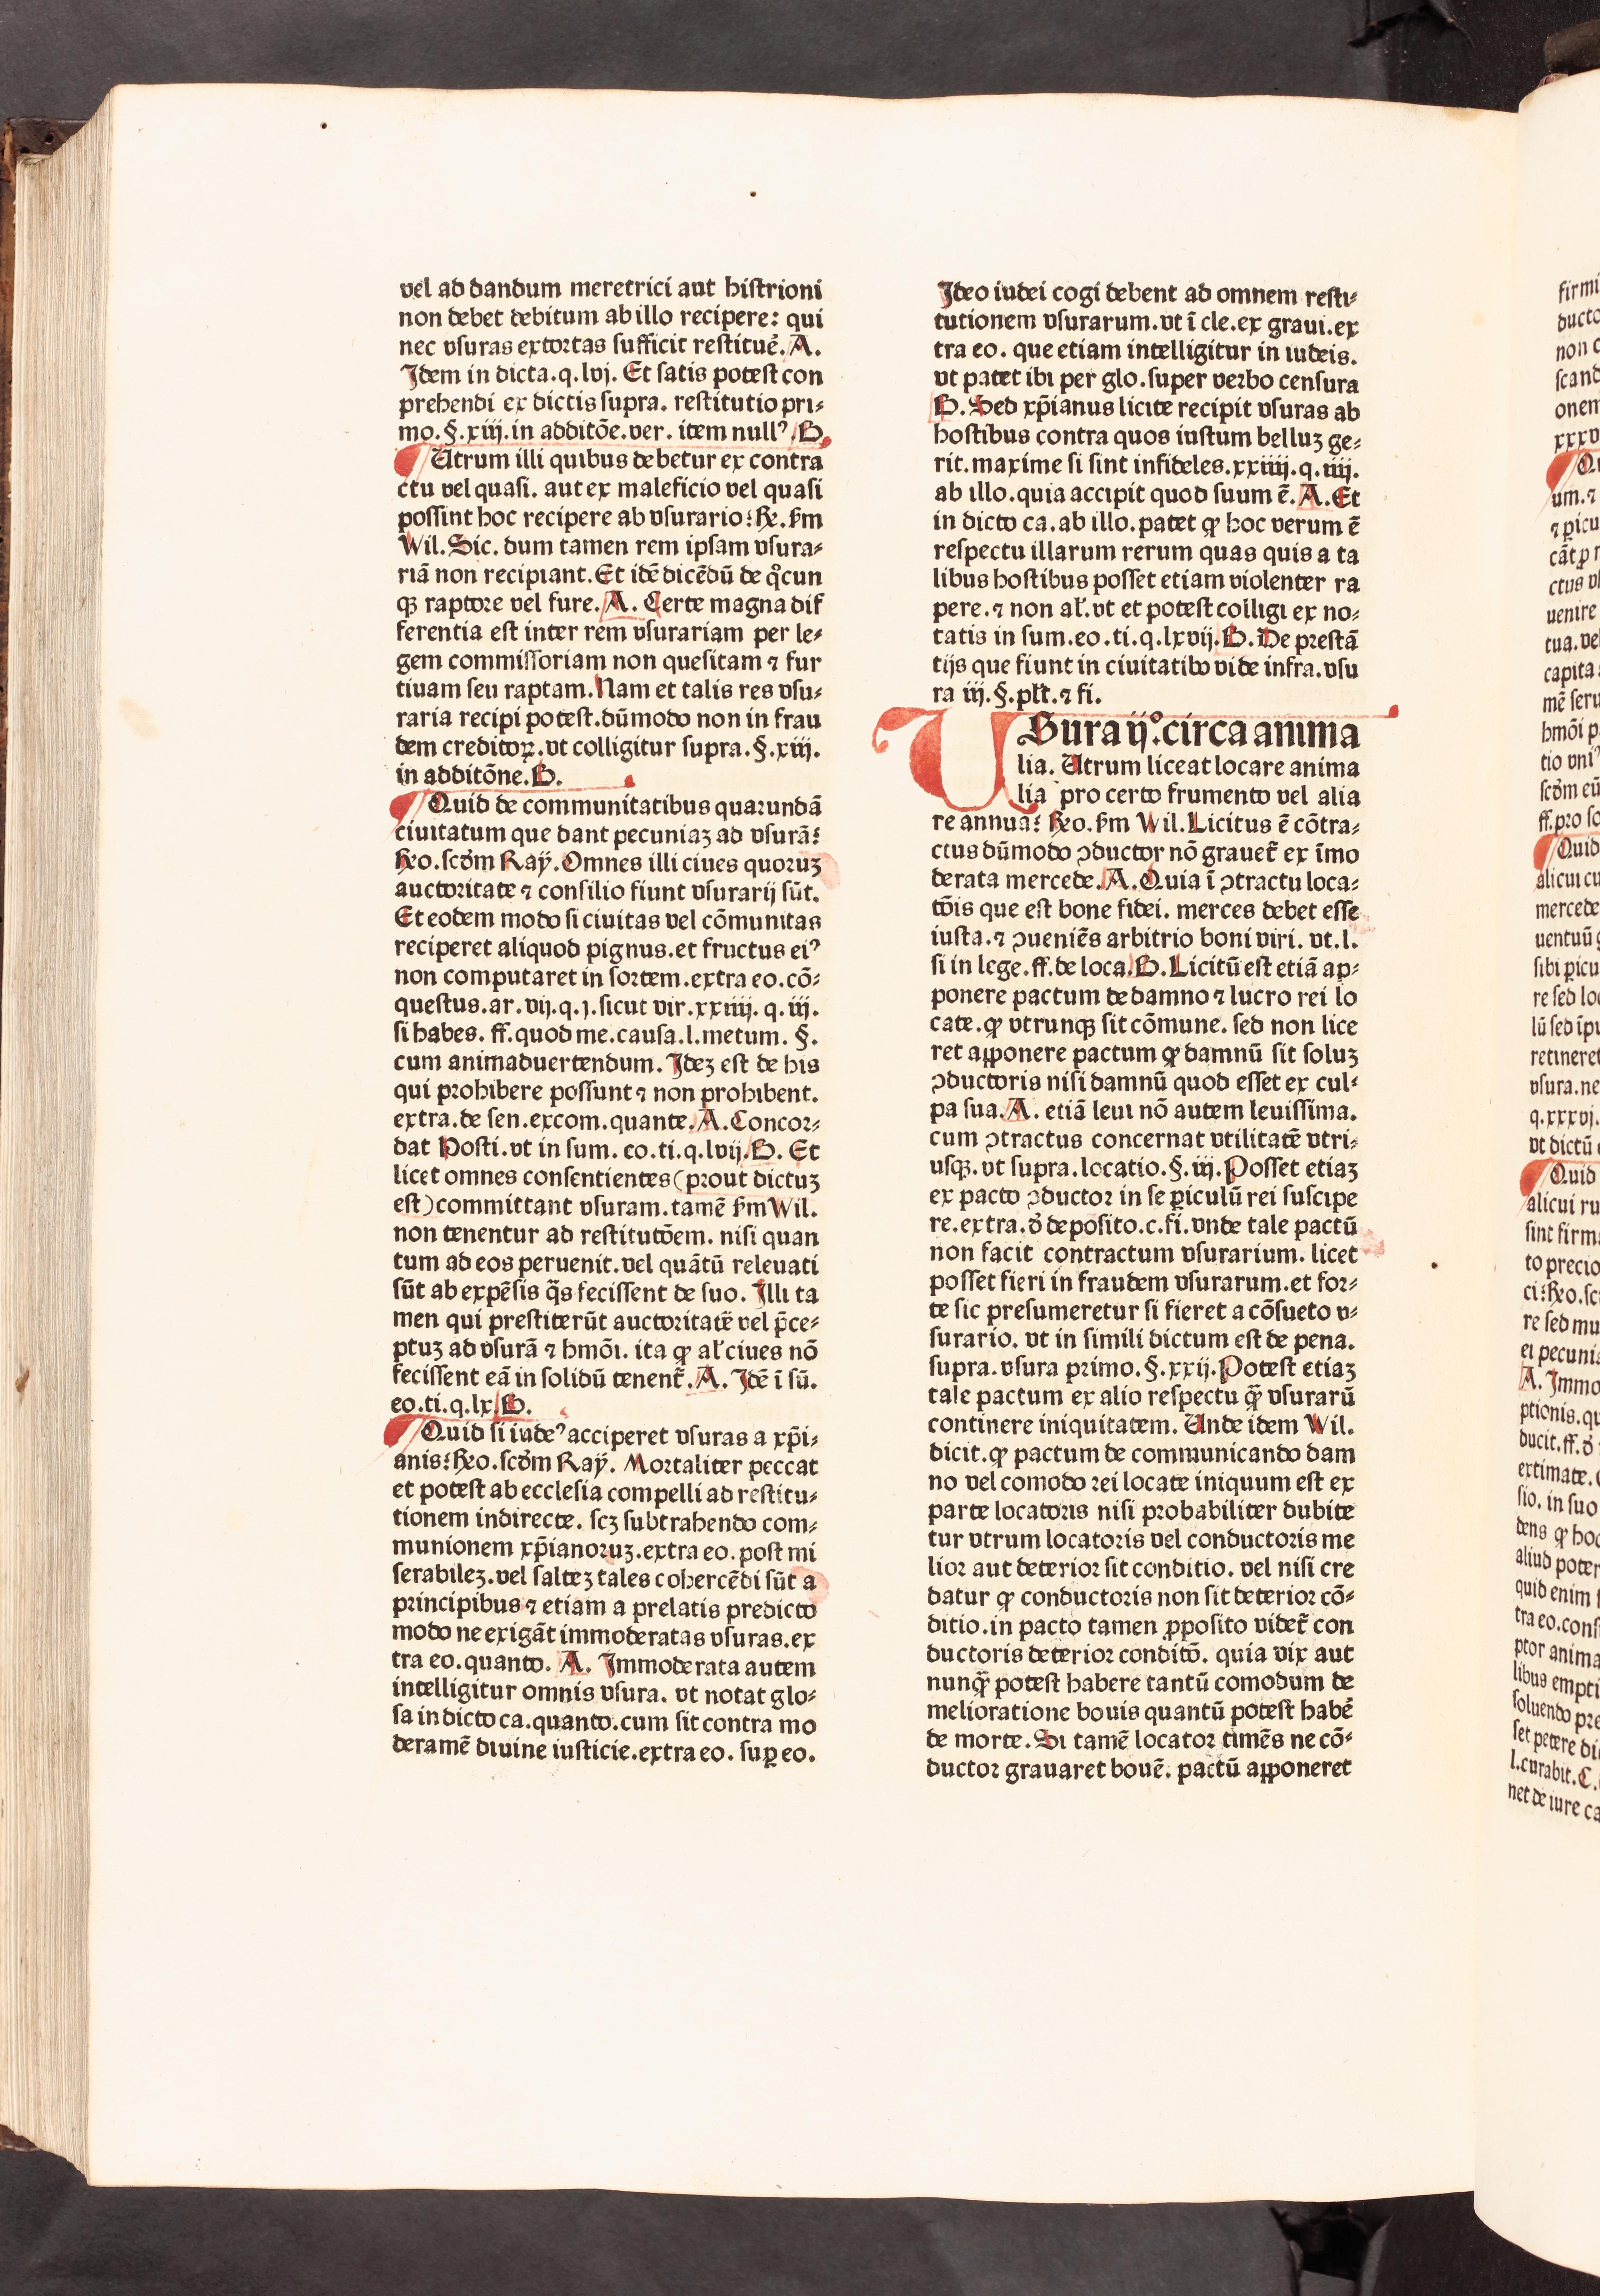 vel ad dandum meretrici aut histrioni
non debet debitum ab illo recipere: qui
nec vsuras extortas sufficit restituẽ. A.
Idem in dicta.q.lvj. Et satis potest con
prehendi ex dictis supra. restitutio pri⸗
mo.§.xiij.in additõe.ver. item nullꝰ. B.
Utrum illi quibus debetur ex contra
ctu vel quasi. aut ex maleficio vel quasi
possint hoc recipere ab vsurario: Rx. ẜm
Wil. Sic. dum tamen rem ipsam vsura⸗
riã non recipiant. Et idẽ dicẽdũ de qͦcun
qꝫ raptore vel fure. A. Certe magna dif
ferentia est inter rem vsurariam per le⸗
gem commissoriam non quesitam ⁊ fur
tiuam seu raptam. Nam et talis res vsu⸗
raria recipi potest.dũmodo non in frau
dem creditoꝝ.vt colligitur supra.§.xiij.
in additõne.B.
Quid de communitatibus quarundã
ciuitatum que dant pecuniaꝫ ad vsurã:
Rxo. scd̓m Raẏ. Omnes illi ciues quoruꝫ
auctoritate ⁊ consilio fiunt vsurarij sũt.
Et eodem modo si ciuitas vel cõmunitas
reciperet aliquod pignus.et fructus eiꝰ
non computaret in sortem.extra eo.cõ⸗
questus.ar.vij.q.j.sicut vir.xxiiij.q.iij.
si habes. ff.quod me.causa.l.metum. §.
cum animaduertendum. Ideꝫ est de his
qui prohibere possunt ⁊ non prohibent.
extra.de sen.excom.quante. A. Concor⸗
dat Hosti.vt in sum.eo.ti.q.lvij. B. Et
licet omnes consentientes (prout dictuꝫ
est) committant vsuram.tamẽ ẜm Wil.
non tenentur ad restitutõem. nisi quan
tum ad eos peruenit.vel quãtũ releuati
sũt ab expẽsis q̃s fecissent de suo. Illi ta
men qui prestiterũt auctoritatẽ vel p̃ce⸗
ptuꝫ ad vsurã ⁊ hmõi. ita ꝙ al̓ ciues nõ
fecissent eã in solidũ tenent᷑. A. Idẽ ĩ sũ.
eo.ti.q.lx. B.
Quid si iudeꝰ acciperet vsuras a xp̃i⸗
anis: Rxo. scd̓m Raẏ. Mortaliter peccat
et potest ab ecclesia compelli ad restitu⸗
tionem indirecte. scꝫ subtrahendo com⸗
munionem xp̃ianoruꝫ.extra eo.post mi
serabileꝫ.vel salteꝫ tales cohercẽdi sũt a
principibus ⁊ etiam a prelatis predicto
modo ne exigãt immoderatas vsuras.ex
tra eo.quanto. A. Immoderata autem
intelligitur omnis vsura. vt notat glo⸗
sa in dicto ca.quanto.cum sit contra mo
deramẽ diuine iusticie.extra eo. suꝑ eo.
Ideo iudei cogi debent ad omnem resti⸗
tutionem vsurarum.vt ĩ cle.ex graui.ex
tra eo. que etiam intelligitur in iudeis.
vt patet ibi per glo.super verbo censura
B. Sed xp̃ianus licite recipit vsuras ab
hostibus contra quos iustum belluꝫ ge⸗
rit.maxime si sint infideles.xxiiij.q.iiij.
ab illo.quia accipit quod suum ẽ. A. Et
in dicto ca.ab illo.patet ꝙ hoc verum ẽ
respectu illarum rerum quas quis a ta
libus hostibus posset etiam violenter ra
pere.⁊ non al̓.vt et potest colligi ex no⸗
tatis in sum.eo.ti.q.lxvij. B. De prestã
tijs que fiunt in ciuitatibꝰ vide infra.vsu
ra iij.§.pl̓t.⁊ fi.
USura ij°.circa anima
lia. Utrum liceat locare anima
lia pro certo frumento vel alia
re annua: Rxo. ẜm Wil. Licitus ẽ cõtra⸗
ctus dũmodo ꝯductor nõ grauet᷑ ex ĩmo
derata mercede. A. Quia ĩ ꝯtractu loca⸗
tõis que est bone fidei. merces debet esse
iusta.⁊ ꝯueniẽs arbitrio boni viri. vt.l.
si in lege.ff.de loca. B. Licitũ est etiã ap⸗
ponere pactum de damno ⁊ lucro rei lo
cate. ꝙ vtrunqꝫ sit cõmune. sed non lice
ret apponere pactum ꝙ damnũ sit soluꝫ
ꝯductoris nisi damnũ quod esset ex cul⸗
pa sua. A. etiã leui nõ autem leuissima.
cum ꝯtractus concernat vtilitatẽ vtri⸗
usqꝫ.vt supra.locatio.§.iij. Posset etiaꝫ
ex pacto ꝯductor in se ꝑiculũ rei suscipe
re.extra.d̓ deposito.c.fi.vnde tale pactũ
non facit contractum vsurarium. licet
posset fieri in fraudem vsurarum.et for⸗
te sic presumeretur si fieret a cõsueto v⸗
surario. vt in simili dictum est de pena.
supra. vsura primo.§.xxij. Potest etiaꝫ
tale pactum ex alio respectu qꝙ vsurarũ
continere iniquitatem. Unde idem Wil.
dicit.ꝙ pactum de communicando dam
no vel comodo rei locate iniquum est ex
parte locatoris nisi probabiliter dubite
tur vtrum locatoris vel conductoris me
lior aut deterior sit conditio. vel nisi cre
datur ꝙ conductoris non sit deterior cõ⸗
ditio.in pacto tamen ꝓposito videt᷑ con
ductoris deterior conditõ. quia vix aut
nunqꝙ potest habere tantũ comodum de
melioratione bouis quantũ potest habẽ
de morte. Si tamẽ locator timẽs ne cõ⸗
ductor grauaret bouẽ. pactũ apponeret